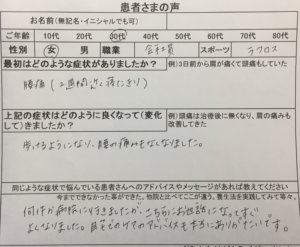 患者さまの声
お名前(無記名・イニシャルでも可)
ご年齢 10代 20代 30代 40代 50代 60代 70代 80代
性別 女 男 職業 会社員 スポーツ ラクロス
最初はどのような症状がありましたか? 例)3日前から肩が痛くて頭痛もしていた
腰痛(2週間近く寝たきり)
上記の症状はどのように良くなって(変化して)きましたか? 例)頭痛は治療後に無くなり、肩の痛みも改善してきた
歩けるようになり、腰の痛みもなくなりました。
同じような症状で悩んでいる患者さんへのアドバイスやメッセージがあれば教えてください
今までできなかった事ができた。他院と比べてここが違う。養生法を実践してみて等々、
何件か病院に行きましたが、こちらにお世話になってすぐ
よくなりました。自宅でのケアのアドバイスも本当にありがたいです。